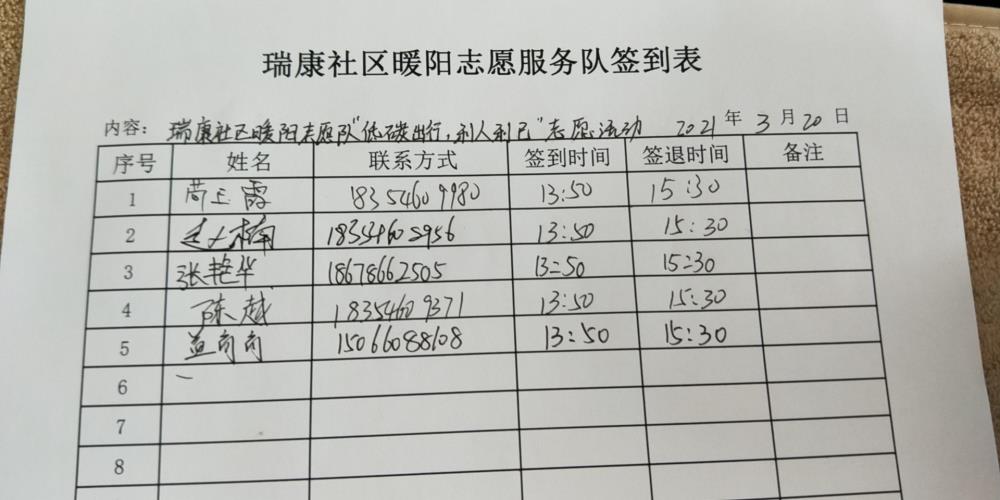 瑞康社区暖阳志愿服务队签到表
内容：瑞康社区暖阳志愿队“低碳出行，利人利己”志愿活动 2021年3月20日
序号 姓名 联系方式 签到时间 签退时间 备注
1 18354609980 13:50 15:30
2 13:50 15:30
3 张艳华 18678662505 13:50 15:30
4 陈越 18354609371 13:50 15:30
5 15066088108 13:50 15:30
6
7
8